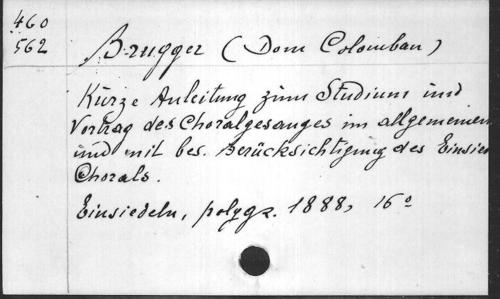 460
562
Brugger (Dom Colomban)
Kurze Anleitung zum Studium und
Vortrag des Choralgesanges im allgemeinen
und mit bes. Berücksichtigung des Einsied
Chorals.
Einsiedeln, polygr. 1888, 16º